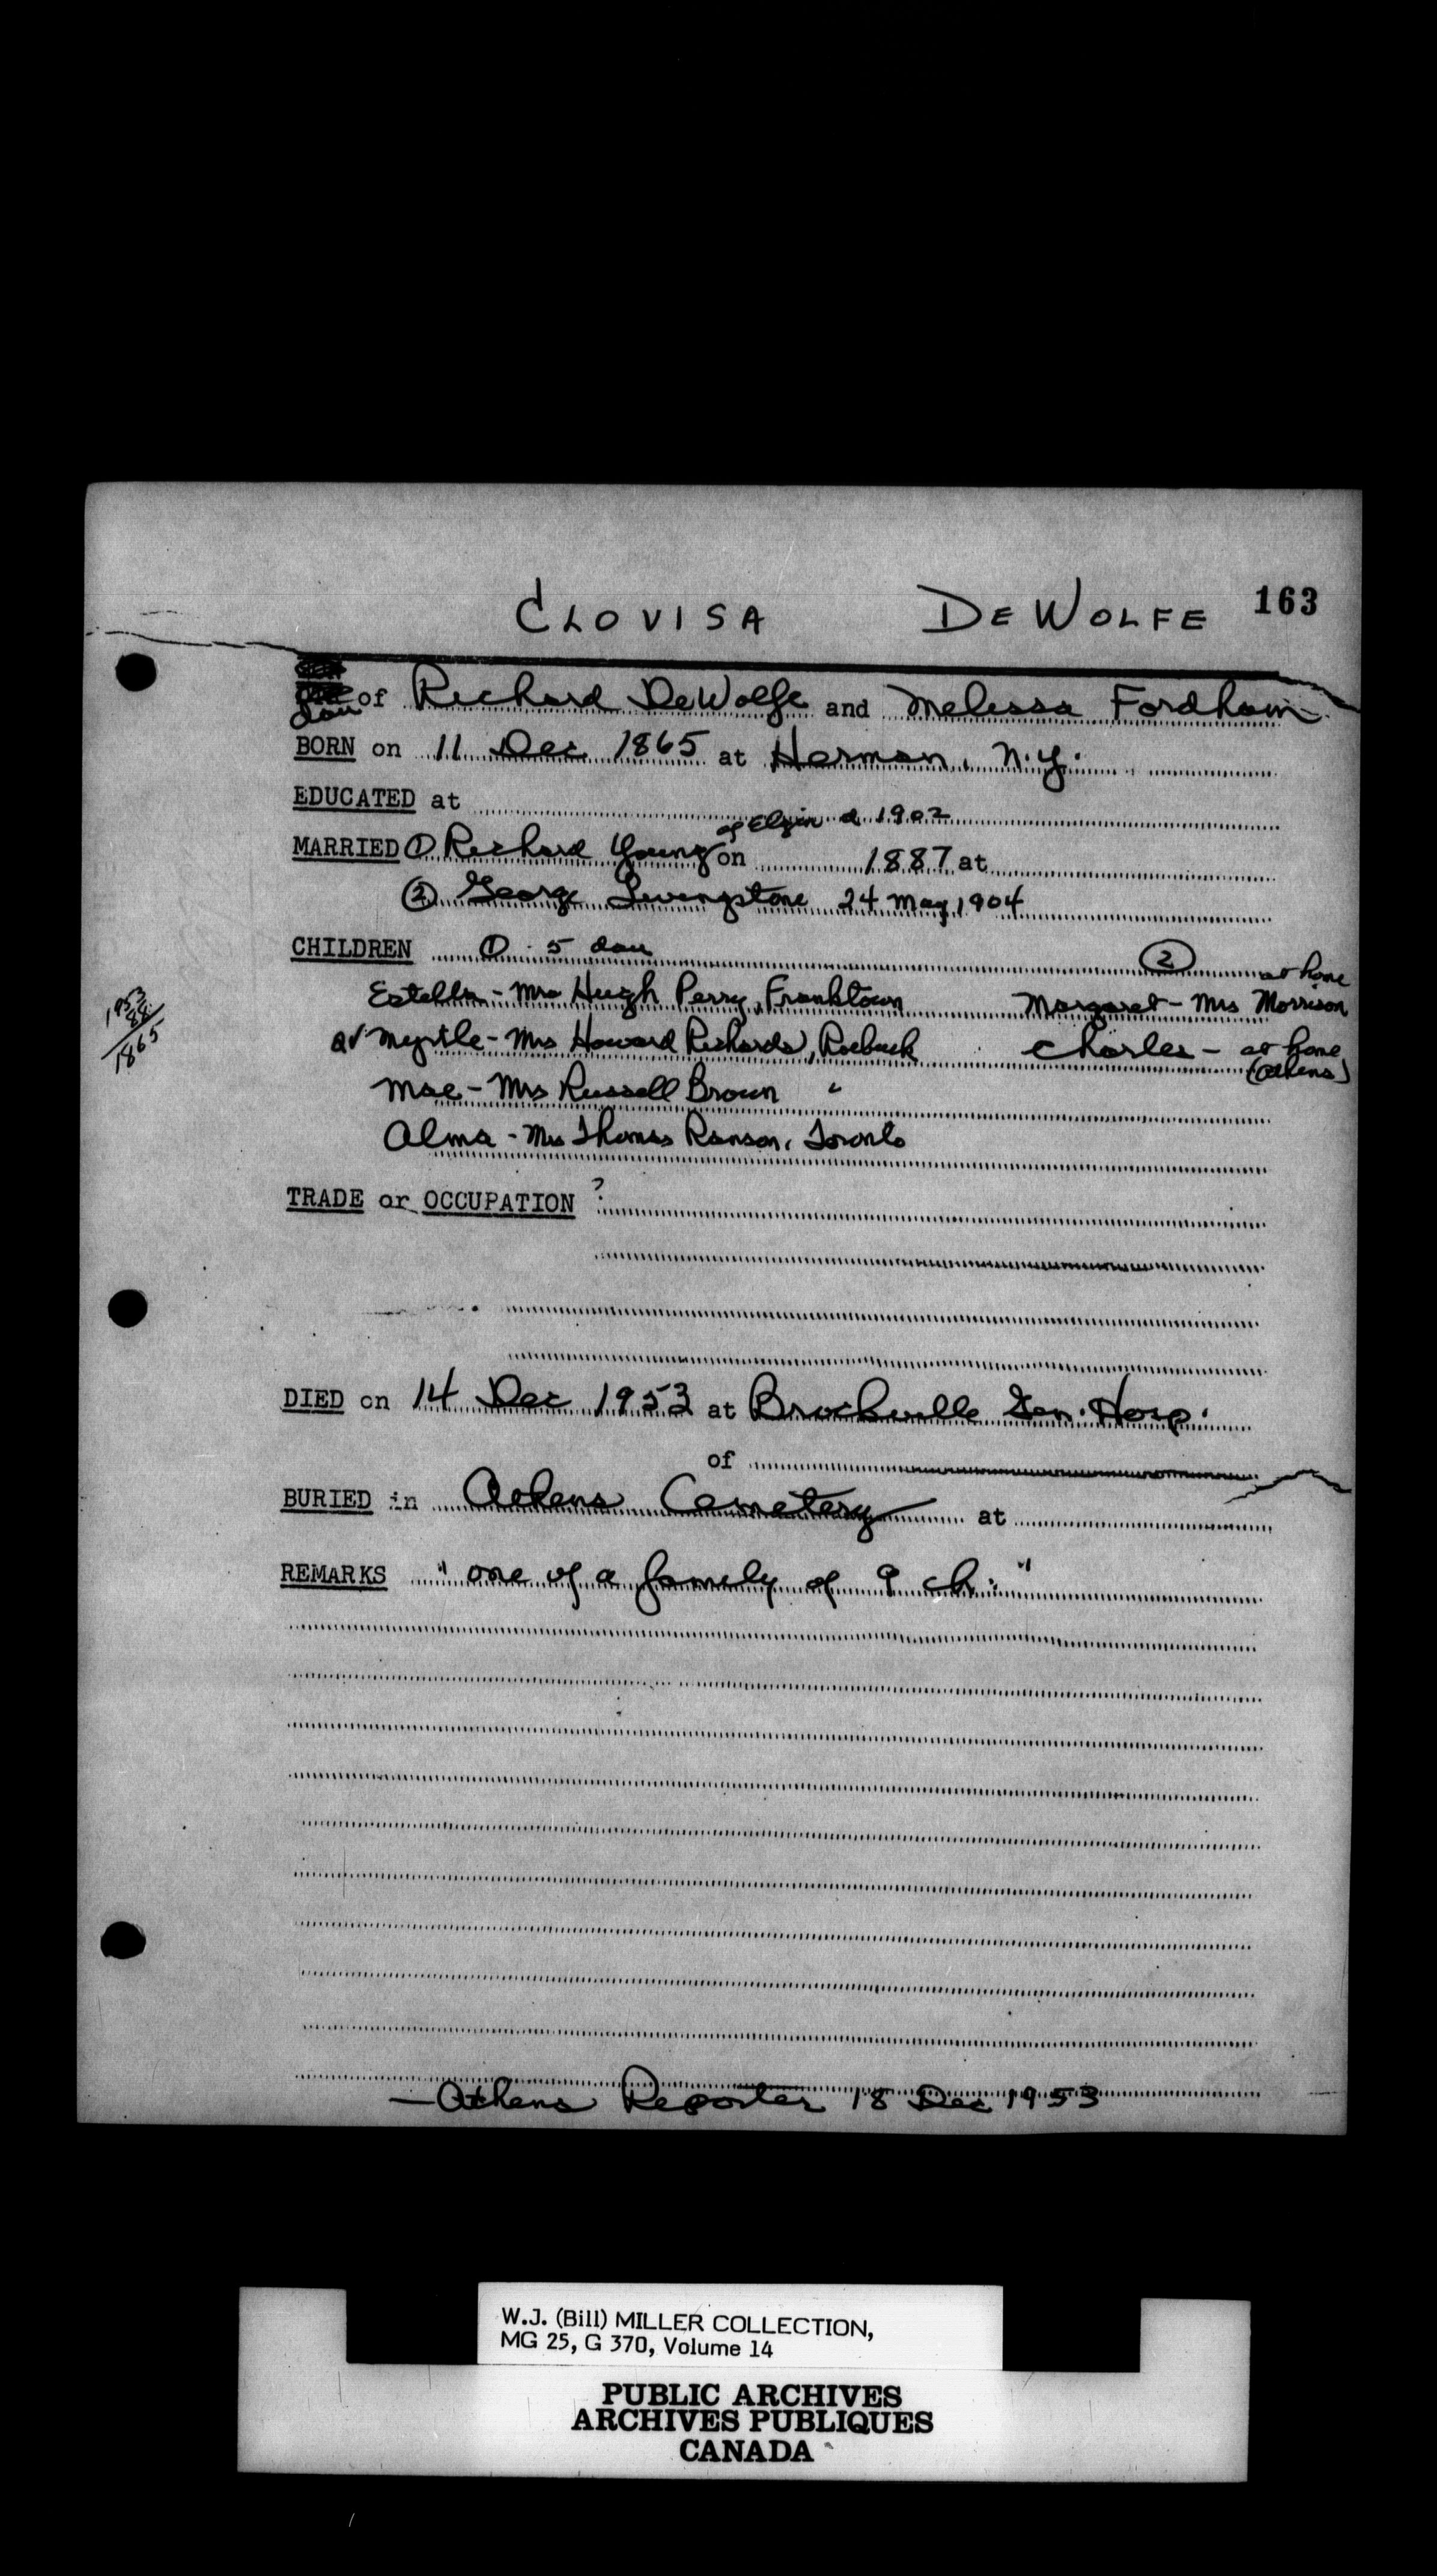 CLOVISA DEWOLFE 163
dau of Richard DeWolfe and Melissa Fordham
BORN on 11 Dec 1865 at Herman, N.Y.
EDUCATED at
of Elgin d 1902
MARRIED ① Richard Young on 1887 at
② George Livingstone 24 May 1904
CHILDREN ① 5 dau ② at home
Estella - Mrs Hugh Perry, Franktown Margaret - Mrs Morrison
Myrtle - Mrs Howard Richards, Roebuck Charles - at home
(Athens)
Mae - Mrs Russell Brown "
Alma - Mrs Thomas Ranson, Toronto
1953
88
1865
TRADE or OCCUPATION ?
DIED on 14 Dec 1953 at Brockville Gen. Hosp.
of
BURIED in Athens Cemetery at
REMARKS "one of a family of 9 ch."
— Athens Reporter 18 Dec 1953
W.J. (Bill) MILLER COLLECTION,
MG 25, G 370, Volume 14
PUBLIC ARCHIVES
ARCHIVES PUBLIQUES
CANADA